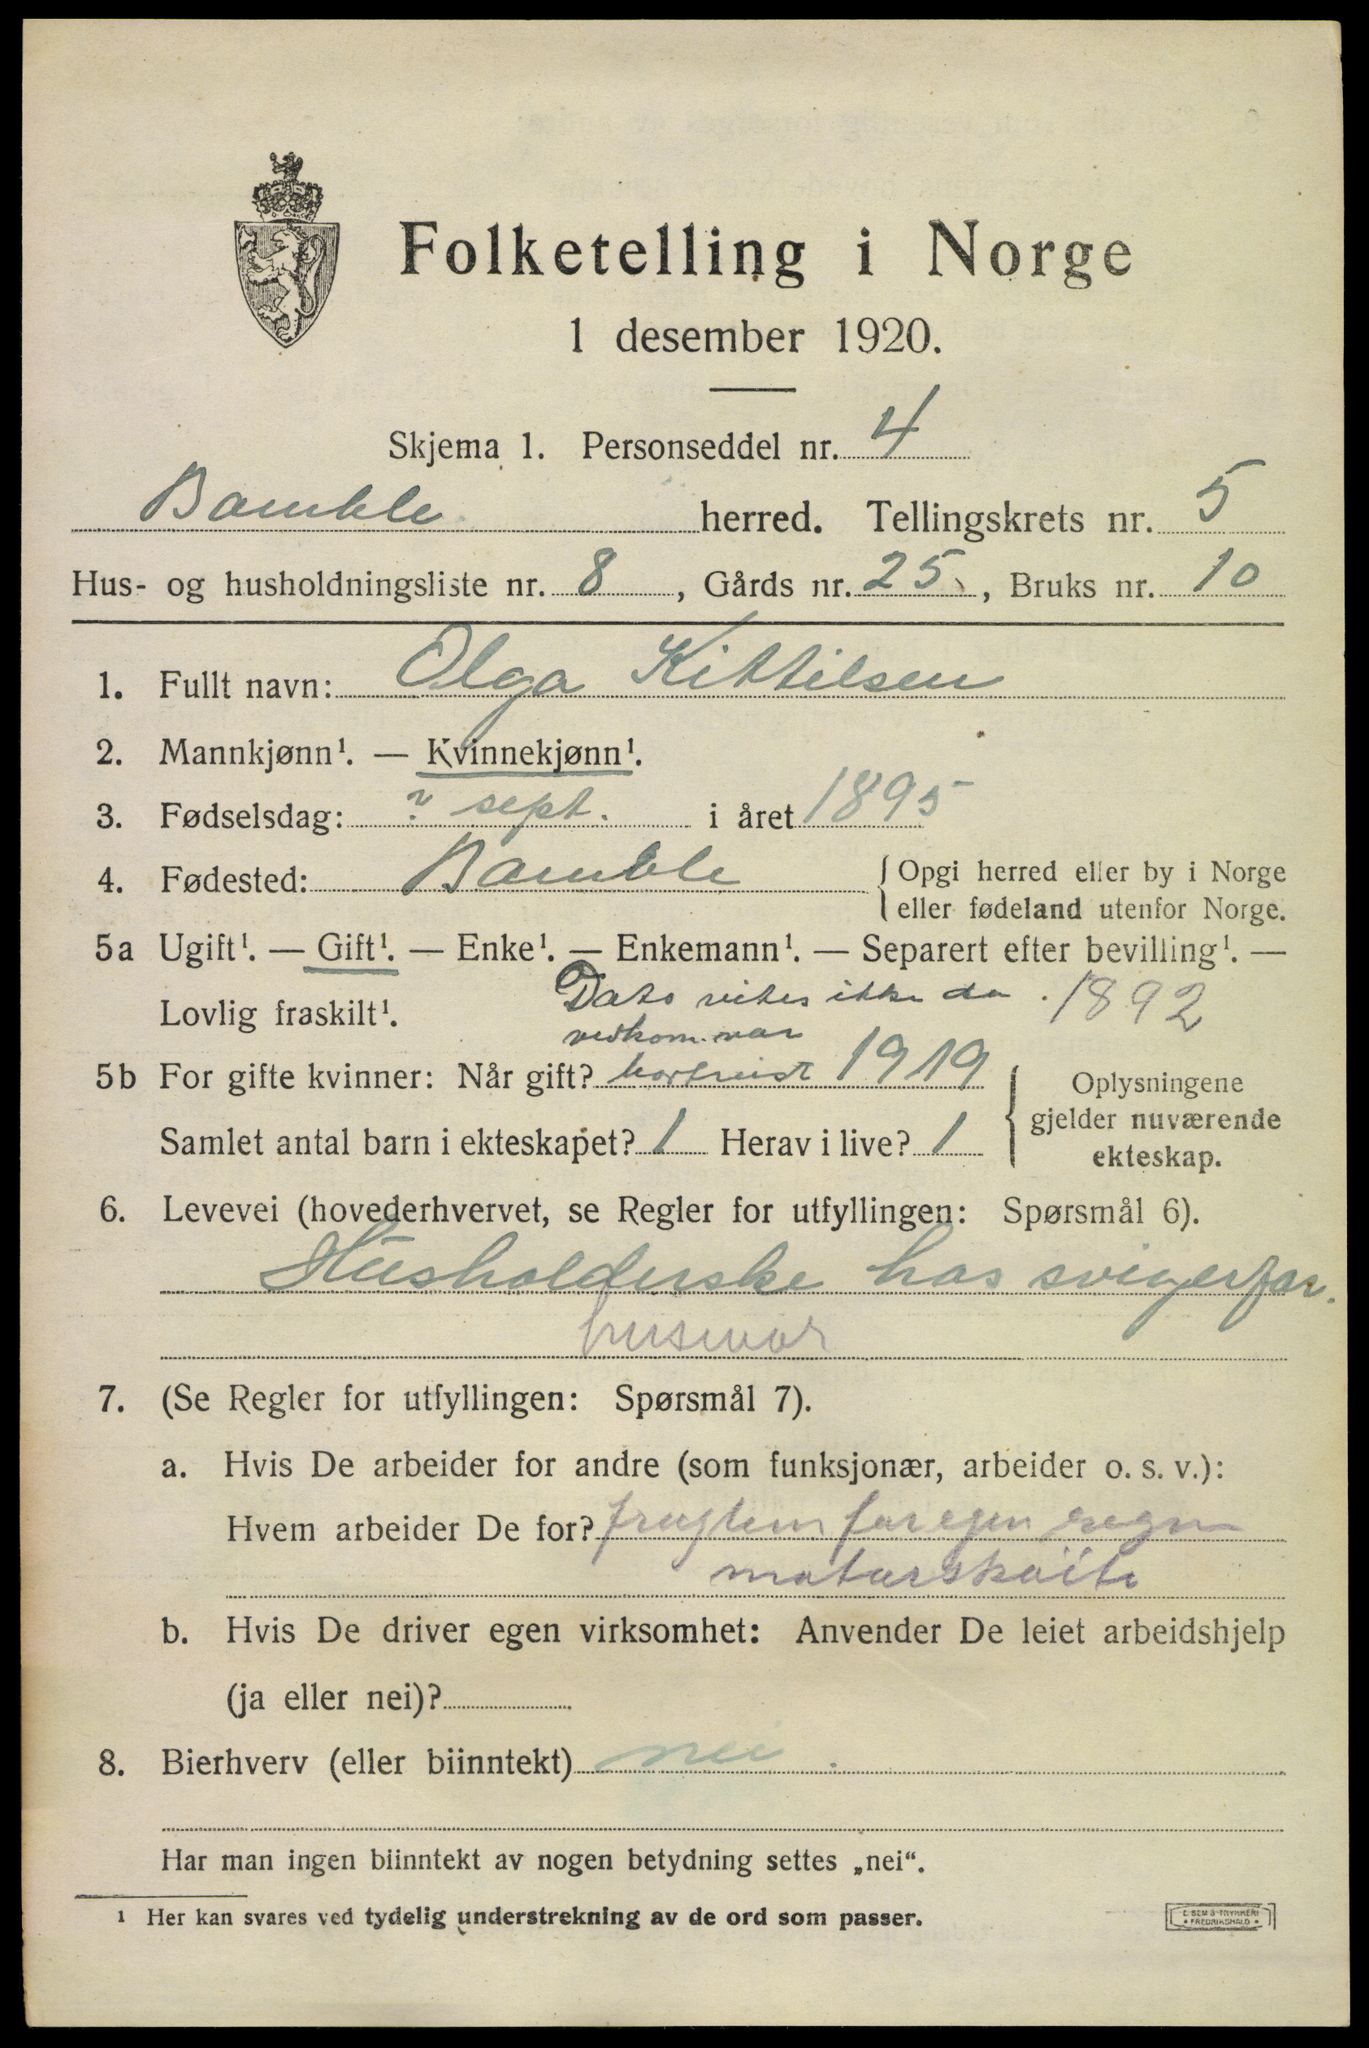 Folketelling i Norge
1 desember 1920.
Skjema 1. Personseddel nr. 4
Bamble herred. Tellingskrets nr. 5
Hus- og husholdningsliste nr. 8, Gårds nr. 25, Bruks nr. 10
1. Fullt navn: Olga Kittilsen
2. Mannkjønn¹. — Kvinnekjønn¹.
3. Fødselsdag: ? sept. i året 1895
4. Fødested: Bamble { Opgi herred eller by i Norge
eller fødeland utenfor Norge.
5a Ugift¹. — Gift¹. — Enke¹. — Enkemann¹. — Separert efter bevilling¹. —
Lovlig fraskilt¹. Dato vites ikke da 1892
vedkom. var
5b For gifte kvinner: Når gift? bortreist 1919
Samlet antal barn i ekteskapet? 1 Herav i live? 1
Oplysningene
gjelder nuværende
ekteskap.
6. Levevei (hovederhvervet, se Regler for utfyllingen: Spørsmål 6).
Husholderske hos svigerfar.
husmor
7. (Se Regler for utfyllingen: Spørsmål 7).
a. Hvis De arbeider for andre (som funksjonær, arbeider o. s. v.):
Hvem arbeider De for? for egen
motorskøite
b. Hvis De driver egen virksomhet: Anvender De leiet arbeidshjelp
(ja eller nei)?
8. Bierhverv (eller biinntekt) nei.
Har man ingen biinntekt av nogen betydning settes „nei“.
¹ Her kan svares ved tydelig understrekning av de ord som passer.
E. SEM'S TRYKKERI
FREDRIKSHALD